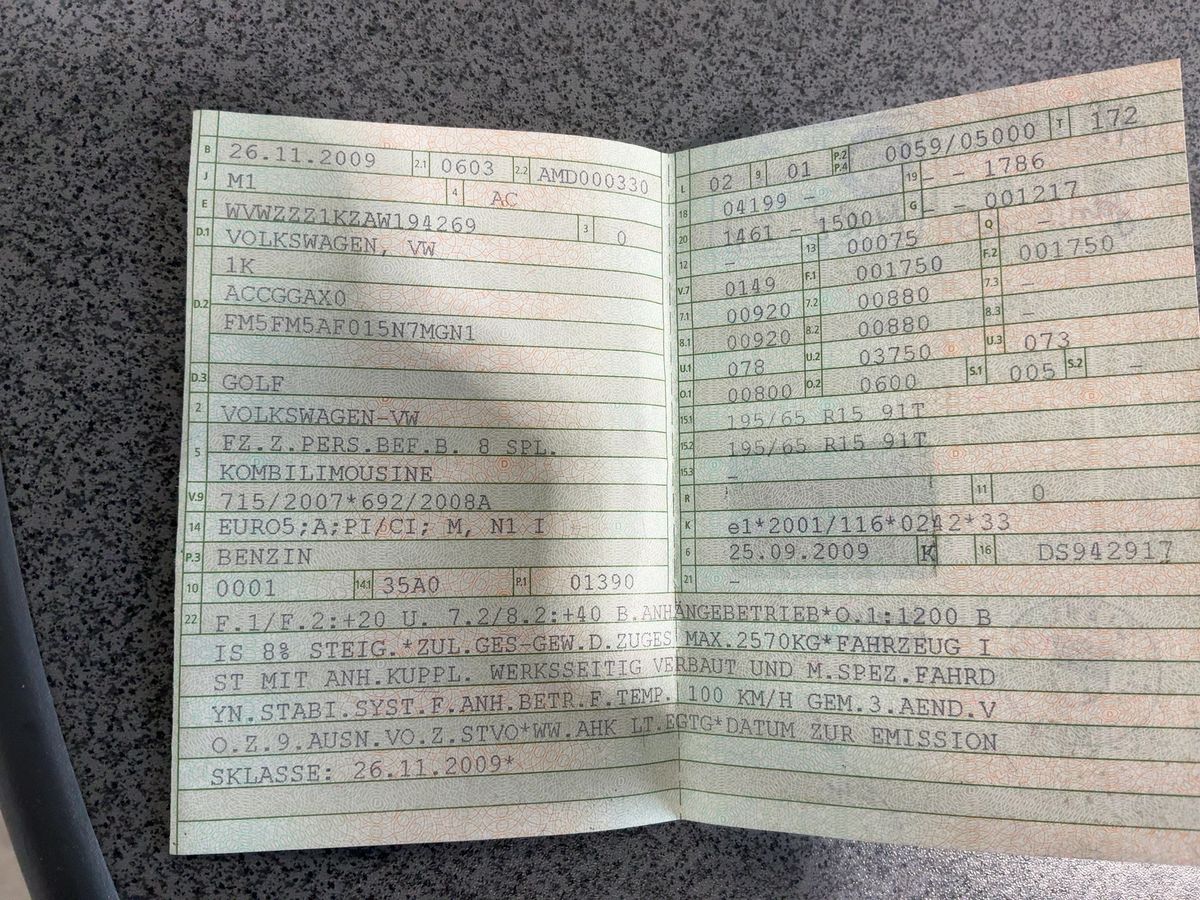 B 26.11.2009 2.1 0603 2.2 AMD000330
J M1 4 AC
E WVWZZZ1KZAW194269 3 0
D.1 VOLKSWAGEN, VW
1K
D.2 ACCGGAX0
FM5FM5AF015N7MGN1
D.3 GOLF
2 VOLKSWAGEN-VW
5 FZ.Z.PERS.BEF.B. 8 SPL.
KOMBILIMOUSINE
V.9 715/2007*692/2008A
14 EURO5;A;PI/CI; M, N1 I
P.3 BENZIN
10 0001 14.1 35A0 P.1 01390
L 02 9 01 P.2 P.4 0059/05000 T 172
18 04199 - 19 - - 1786
20 1461 - 1500 G - - 001217
12 - 13 00075 Q -
V.7 0149 F.1 001750 F.2 001750
7.1 00920 7.2 00880 7.3 -
8.1 00920 8.2 00880 8.3 -
U.1 078 U.2 03750 U.3 073
O.1 00800 O.2 0600 S.1 005 S.2 -
15.1 195/65 R15 91T
15.2 195/65 R15 91T
15.3 -
R 11 0
K e1*2001/116*0242*33
6 25.09.2009 K 16 DS942917
21 -
22 F.1/F.2:+20 U. 7.2/8.2:+40 B.ANHÄNGEBETRIEB*O.1:1200 B
IS 8% STEIG.*ZUL.GES-GEW.D.ZUGES MAX.2570KG*FAHRZEUG I
ST MIT ANH.KUPPL. WERKSSEITIG VERBAUT UND M.SPEZ.FAHRD
YN.STABI.SYST.F.ANH.BETR.F.TEMP. 100 KM/H GEM.3.AEND.V
O.Z.9.AUSN.VO.Z.STVO*WW.AHK LT.EGTG*DATUM ZUR EMISSION
SKLASSE: 26.11.2009*